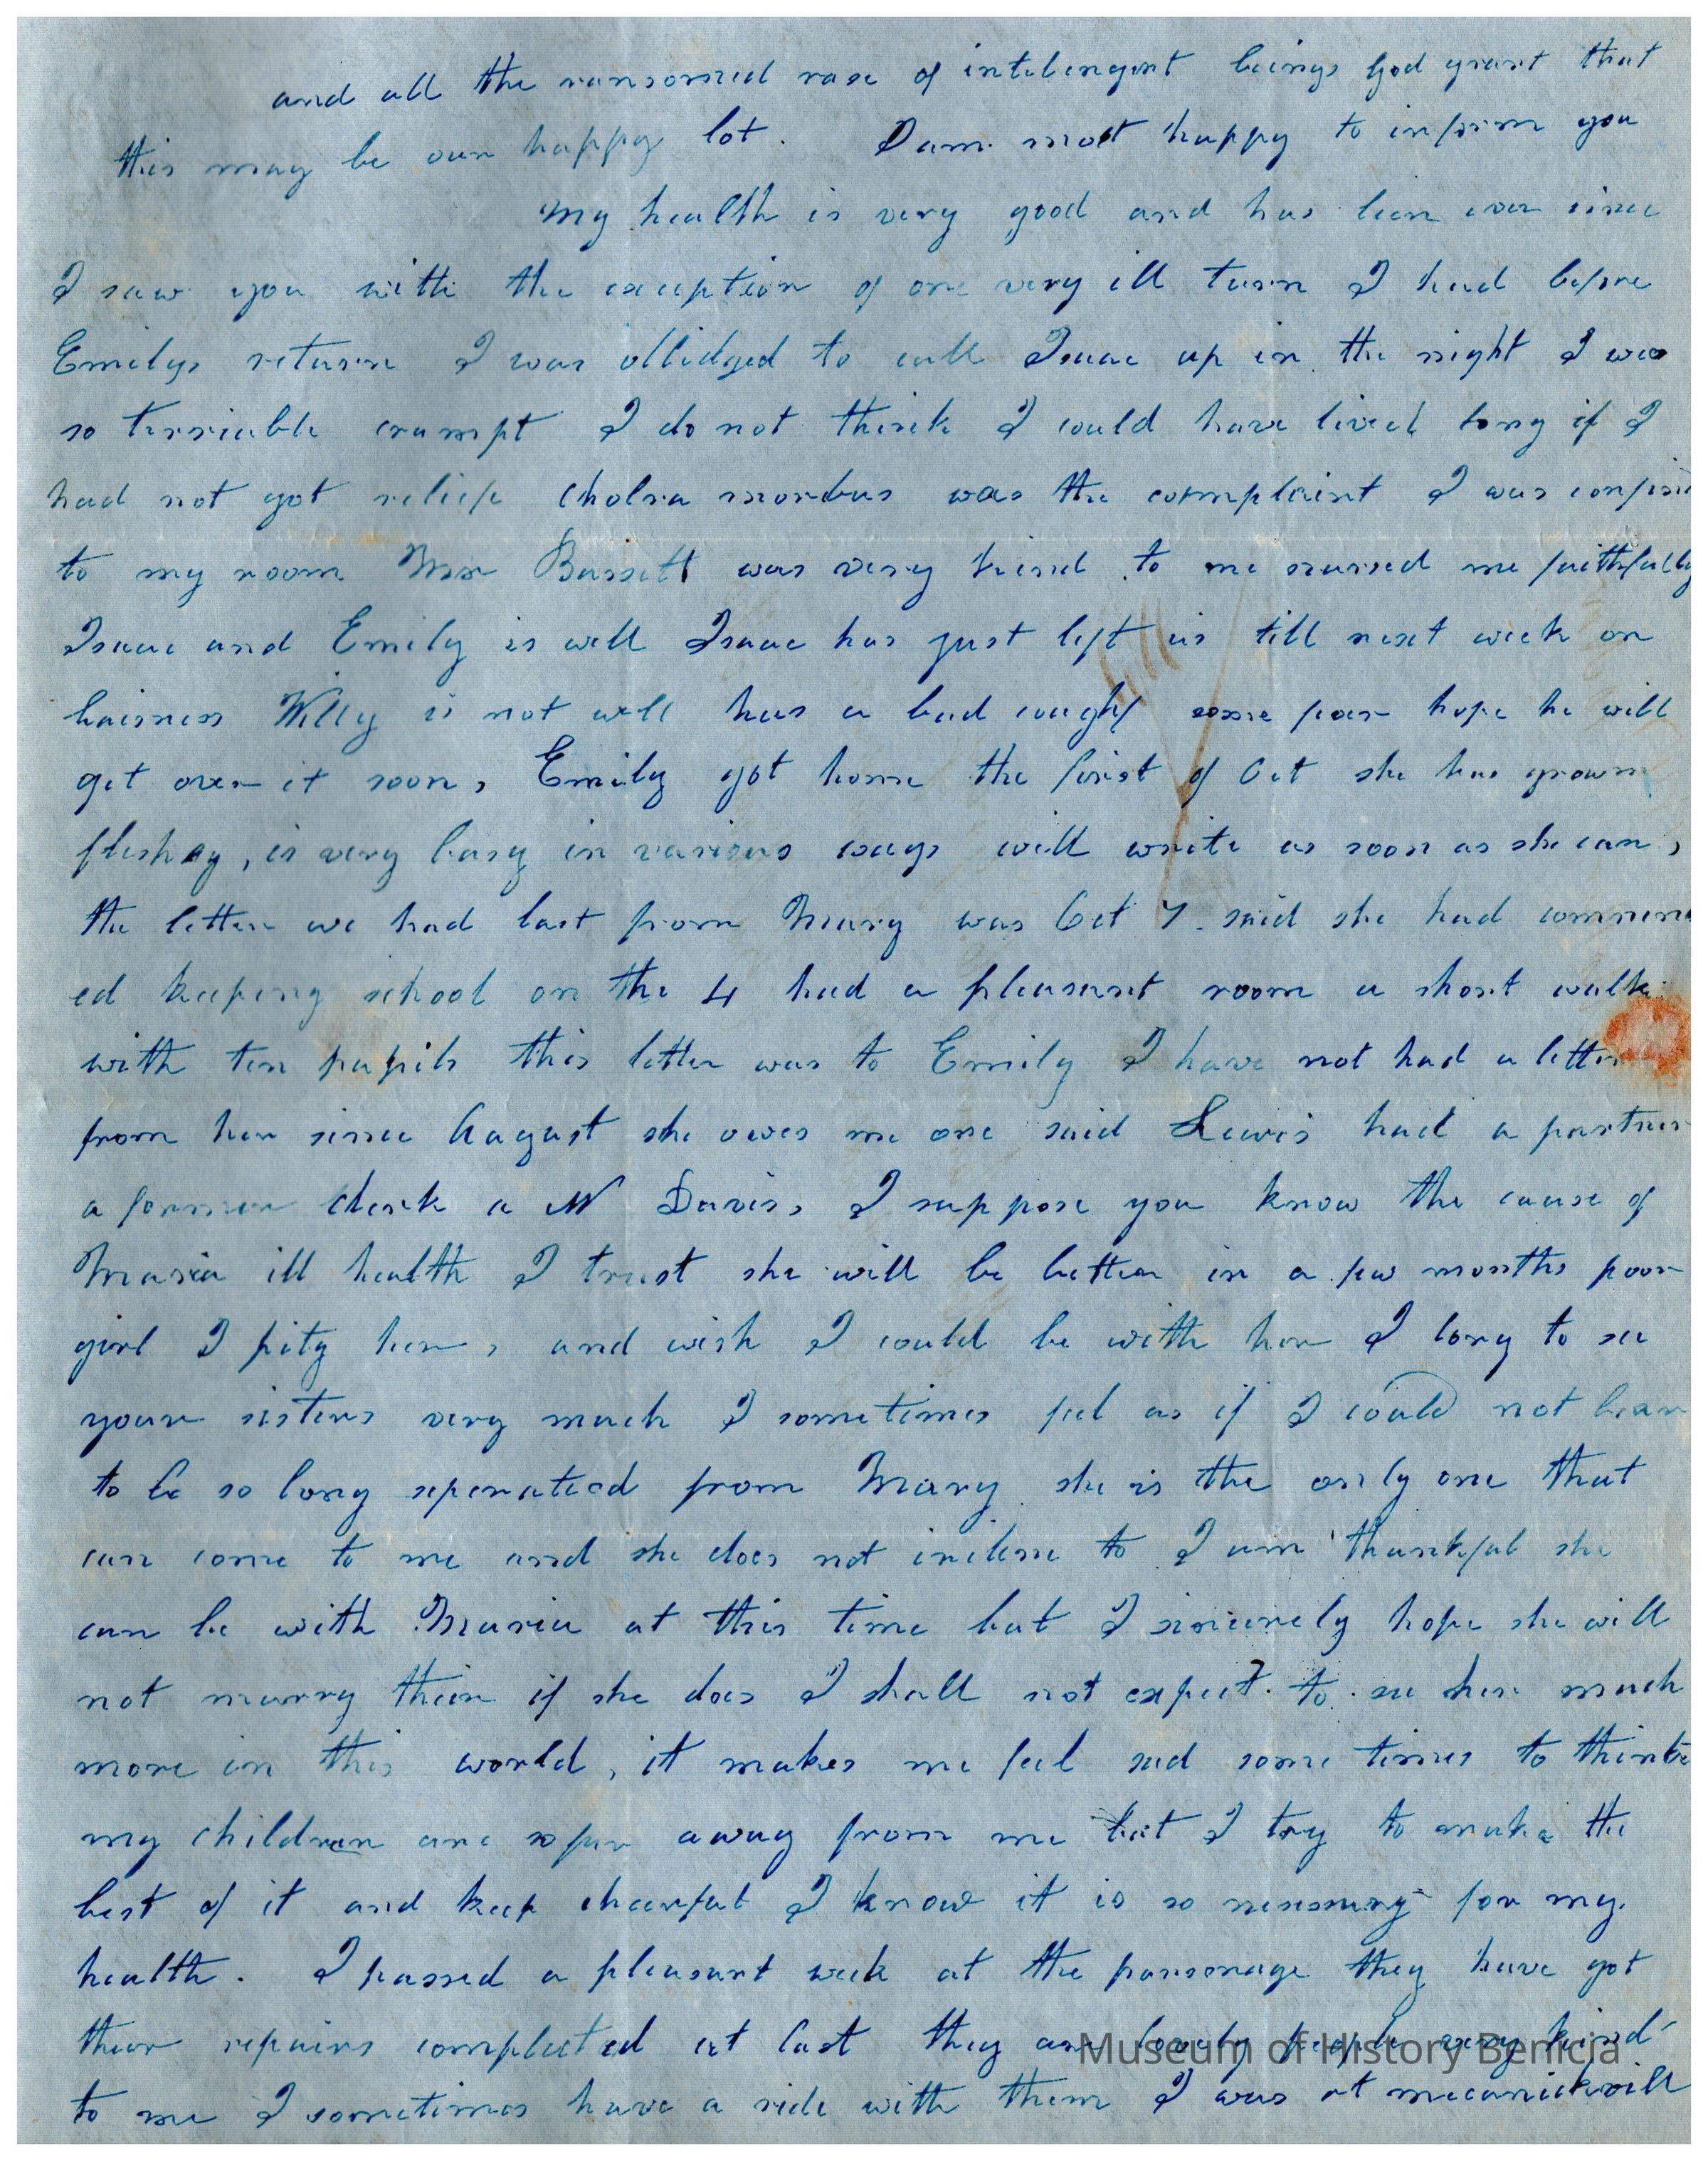 and all the ransomed rase of intelengent beings God grant that
this may be our happy lot. I am most happy to inform you
My health is very good and has been ever since
I saw you with the exception of one very ill turn I had before
Emilys return I was obbidged to call Isaac up in the night I was
so terriable crampt I do not think I could have lived long if I
had not got relief Cholra morbus was the complaint I was confin
to my room Mrs Bassett was very kind to me nursed me faithfully
Isaac and Emily is well Isaac has just left us till next week on
buisness Willy is not well has a bad cough some fear hope he will
get over it soon, Emily got home the first of Oct she has grown
fleshey, is very busy in various ways will write as soon as she can,
the letter we had last from Mary was Oct 7. said she had commenc
ed keeping school on the 4 had a pleasant room a short walk
with ten pupils this letter was to Emily I have not had a letter
from her since August she owes me one said Lewis had a partner
a former clerk a W Davis, I suppose you know the cause of
Maria ill health I trust she will be better in a few months poor
girl I pity her, and wish I could be with her I long to see
your sisters very much I sometimes feel as if I could not bear
to be so long seperated from Mary she is the only one that
can come to me and she does not incline to I am thankful she
can be with Maria at this time but I sincerely hope she will
not marry their if she does I shall not expect to see her much
more in this world, it makes me feel sad some times to think
my children are so far away from me but I try to make the
best of it and keep cheerful I know it is so nessesary for my
health. I passed a pleasant week at the parsonage they have got
their repairs complected at last they are lovely people very kind
to me I sometimes have a ride with them I was at mecanickvill
Museum of History Benicia